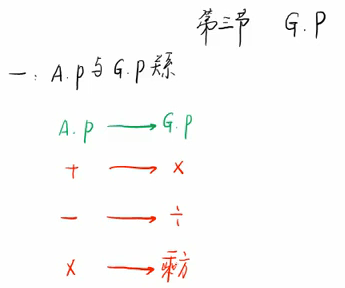 第三节 G.P
一：A.p与G.p关系
A.p → G.p
+ → ×
− → ÷
× → 乘方